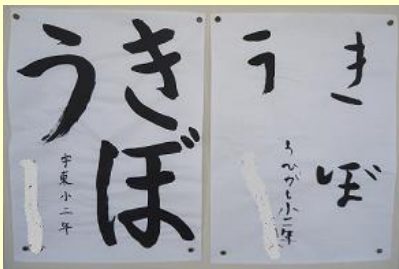 きぼ
う
宇東小二年
きぼ
う
うひがし小二年